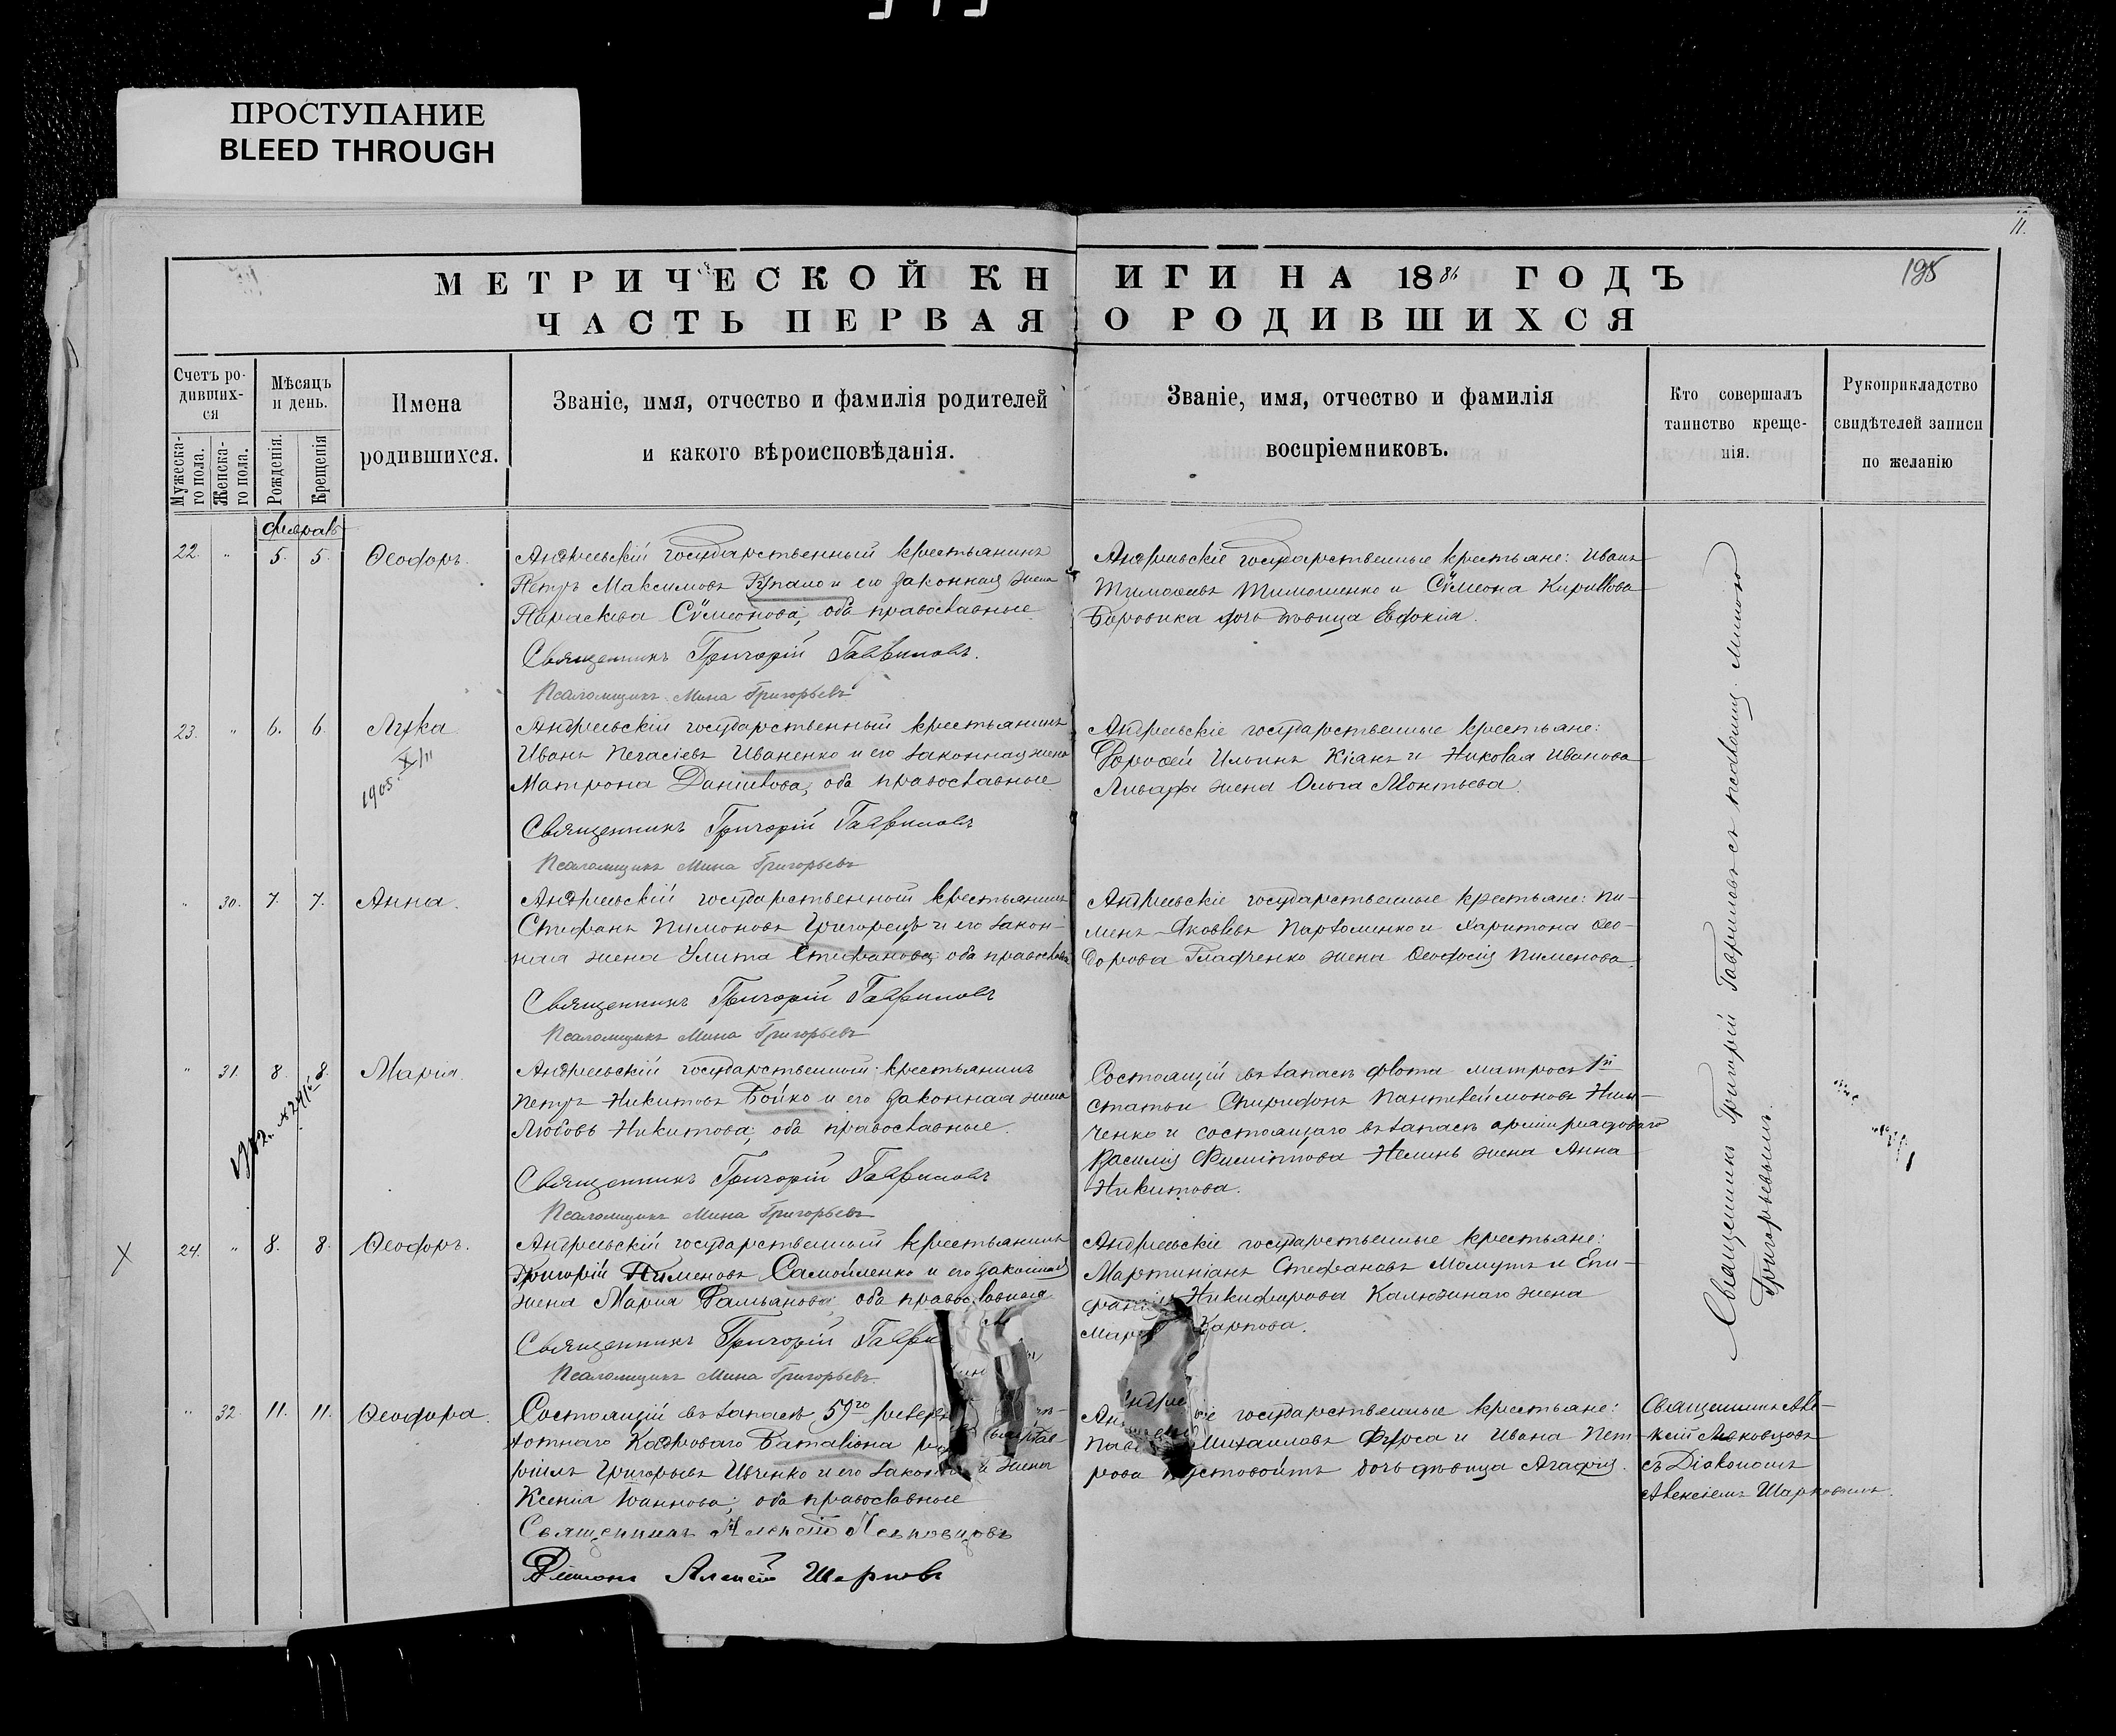 ПРОСТУПАНИЕ
BLEED THROUGH
11.
195
МЕТРИЧЕСКОЙ КНИГИ НА 1886 ГОДЪ
ЧАСТЬ ПЕРВАЯ О РОДИВШИХСЯ
Счетъ родившихся
Мужескаго пола.
Женскаго пола.
Мѣсяцъ и день.
Рожденія.
Крещенія
Имена родившихся.
Званіе, имя, отчество и фамилія родителей
и какого вѣроисповѣданія.
Званіе, имя, отчество и фамилія
воспріемниковъ.
Кто совершалъ
таинство крещенія.
Рукоприкладство
свидѣтелей записи
по желанію
22. " 5. 5. Ѳеодоръ.
Андреевскій государственный крестьянинъ
Петръ Максимовъ и его законная жена
Параскева Сѵмеонова, оба православные
Священникъ Григорій Гавриловъ.
Псаломщикъ Мина Григорьевъ
Андреевскіе государственные крестьяне: Иванъ
Тимоѳеевъ Тимошенко и Сѵмеона Кириллова
Боровика дочь дѣвица Евдокія.
23. " 6. 6. Лука
1905 X/11
Андреевскій государственный крестьянинъ
Иванъ Иваненко и его законная жена
Матрона Даніилова, оба православные
Священникъ Григорій Гавриловъ
Псаломщикъ Мина Григорьевъ
Андреевскіе государственные крестьяне:
Дороѳей Ильинъ Кіянъ и Николая Иванова
жена Ольга Леонтьева.
" 30. 7. 7. Анна.
Андреевскій государственный крестьянинъ
Стефанъ Пимоновъ Григорецъ и его закон-
ная жена Улита Стефанова, оба православн
Священникъ Григорій Гавриловъ
Псаломщикъ Мина Григорьевъ
Андреевскіе государственные крестьяне: Пи-
менъ Яковлевъ Пархоменко и Харитона Ѳео-
дорова Гладченко жена Ѳеодосія Пименова.
" 31. 8. 8. Марія.
Андреевскій государственный крестьянинъ
Петръ Никитовъ Бойко и его законная жена
Любовь Никитова, оба православные.
Священникъ Григорій Гавриловъ
Псаломщикъ Мина Григорьевъ
Состоящій въ запасѣ флота матросъ 1й
статьи Спиридонъ Пантелеймоновъ
ченко и состоящаго въ запасѣ арміи рядоваго
Василія Филиппова жена Анна
Никитова.
X 24. " 8. 8. Ѳеодоръ.
Андреевскій государственный крестьянинъ
Григорій Пименовъ Самойленко и его законная
жена Марія Дамьянова, оба православные
Священникъ Григорій Гаври
Псаломщикъ Мина Григорьевъ.
Андреевскіе государственные крестьяне:
Мартиніанъ Стефановъ и Епи-
фанія Никифорова Калюжнаго жена
Карпова.
" 32. 11. 11. Ѳеодора.
Состоящій въ запасѣ 59го резерв
хотнаго Кадроваго Баталіона
Григорьевъ Ивченко и его законная жена
Ксенія Іоаннова, оба православные
Священникъ Алексій
Діаконъ Алексій Шарковъ
государственные крестьяне:
Михаиловъ Фурса и Ивана Пет-
рова дочь дѣвица Агафія.
Священникъ Але-
ксій
съ Діакономъ
Алексіемъ Шарковымъ.
Священникъ Григорій Гавриловъ съ псаломщ. Миною
Григорьевымъ.